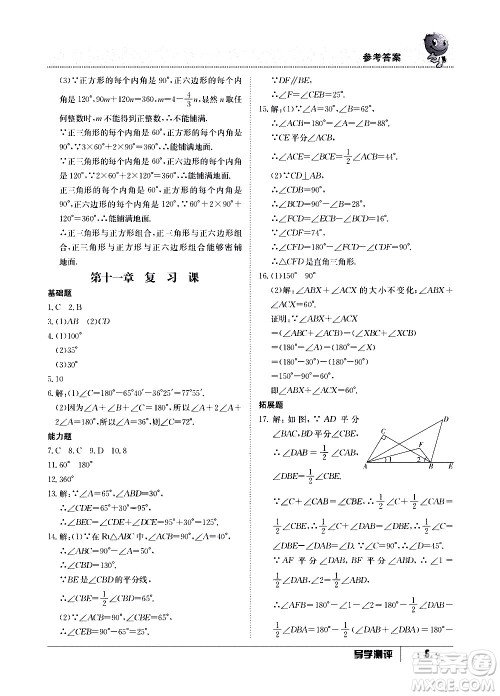 参考答案
(3)∵正方形的每个内角是90°,正六边形的每个内角
是120°,90m+120n=360°,m=4-4/3 n,显然n取任
何整数时,m不能得到正整数,∴不能铺满.
∵正三角形的每个内角是60°,正方形的每个内角是
90°,∵3×60°+2×90°=360°,∴能铺满地面.
∵正三角形的每个内角是60°,正六边形的每个内角是
120°,∵2×60°+2×120°=360°,∴能铺满地面.
∴正三角形与正方形组合、正三角形与正六边形组合、
正三角形与正方形、正六边形组合能够密铺
地面.
第十一章 复习课
基础题
1.C 2.B
3.(1)AB (2)CD
4.(1)100°
(2)35°
(3)30°
5.10
6.解:(1)∠C=180°-65°40′-36°25′=77°55′.
(2)因为∠A+∠B+∠C=180°,∠A=∠B=2∠C,所
以5∠C=180°,所以∠C=36°.
能力题
7.C 8.C 9.D 10.8
11.60° 180°
12.360°
13.解:∵∠A=65°,∠ABD=30°,
∴∠CDE=65°+30°=95°.
∴∠BEC=∠CDE+∠C=95°+35°=130°.
14.解:(1)∵在Rt△ABC中,∠ACB=90°,∠A=40°,
∴∠ABC=50°.
∴∠CBD=130°.
∵BE是∠CBD的平分线,
∴∠CBE=1/2∠CBD=65°.
(2)∵∠ACB=90°,∠CBE=65°,
∴∠CEB=90°-65°=25°.
∵DF∥BE,
∴∠F=∠CEB=25°.
15.解:(1)∵∠A=30°,∠B=62°,
∴∠ACB=180°-∠A-∠B=88°.
∵CE平分∠ACB,
∴∠ACE=∠BCE=1/2∠ACB=44°.
(2)∵CD⊥AB,
∴∠CDB=90°.
∴∠BCD=90°-∠B=28°.
∴∠FCD=∠ECB-∠BCD=16°.
∵∠CDF=74°,
∴∠CFD=180°-∠FCD-∠CDF=90°.
∴△CFD是直角三角形.
16.(1)150° 90°
(2)解:∠ABX+∠ACX的大小不变化;∠ABX+
∠ACX=60°.
证明:∴∠ABX+∠ACX
=(180°-∠A)-(∠XBC+∠XCB)
=(180°-30°)-90°
=150°-90°
=60°.
拓展题
17.解:如图,∵AD平分
∠BAC,BD平分∠EBC,
∴∠DAB=1/2∠CAB,
∠DBE=1/2∠CBE.
∵∠C=∠CBE-∠CAB,
∠D=∠DBE-∠DAB,
∴∠D=1/2∠CBE-1/2∠CAB=1/2∠C=45°.
∵AF平分∠DAB,BF平分∠ABD,
∴∠1=1/2∠DAB,∠2=1/2∠ABD.
∴∠AFB=180°-∠2-∠1=180°-1/2∠ABD-
A
B
C
D
E
F
1
2
导学测评
5